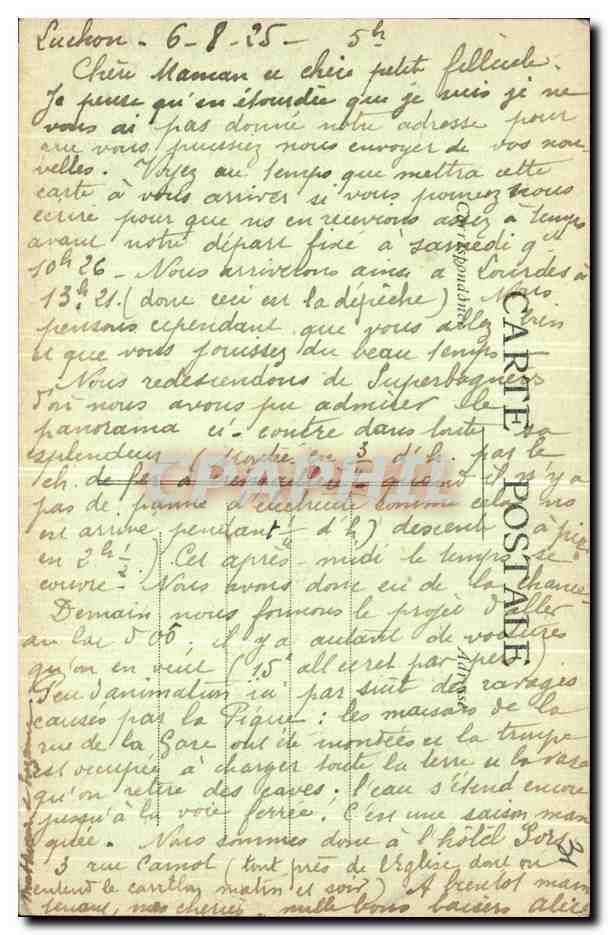 Luchon - 6-8-25 - 5h
Chère Maman et chère petite filleule.
Je pense qu'en étourdie que je suis je ne
vous ai pas donné notre adresse pour
que vous puissiez nous envoyer de vos nou-
velles. Voyez au temps que mettra cette
carte à vous arriver si vous pouvez nous
écrire pour que ns en recevions assez à temps
avant notre départ fixé à samedi
10h26 - Nous arriverons ainsi à Lourdes à
13h.21. (donc ceci est la dépêche) Nous
pensons cependant que vous allez bien
et que vous jouissez du beau temps
Nous redescendons de Superbagnères
d'où nous avons pu admirer le
panorama ci-contre dans toute sa
splendeur (montée en 3/4 d'h. par le
ch. de fer à quand il n'y a
pas de panne d'électricité comme cela ns
est arrivé pendant d'h) descente à pied
en 2h 1/2.) Cet après-midi le temps se
couvre - Nous avons donc eu de la chance
Demain nous formons le projet d'aller
au lac d'Oô; il y a autant de voitures
qu'on en veut (15f all et ret par pers)
Peu d'animation ici par suite des ravages
causés par la Pique: les maisons de la
rue de la Gare ont été inondées et la troupe
est occupée à charger toute la terre et la vase
qu'on retire des caves; l'eau s'étend encore
jusqu'à la voie ferrée! C'est une saison man
quée. Nous sommes donc à l'hôtel
3 rue Carnot (tout près de l'Eglise dont on
entend le carillon matin et soir) A bientôt main
tenant, mes chéries, mille bons baisers Alice
CARTE POSTALE
Correspondance
Adresse
CPAPHIL